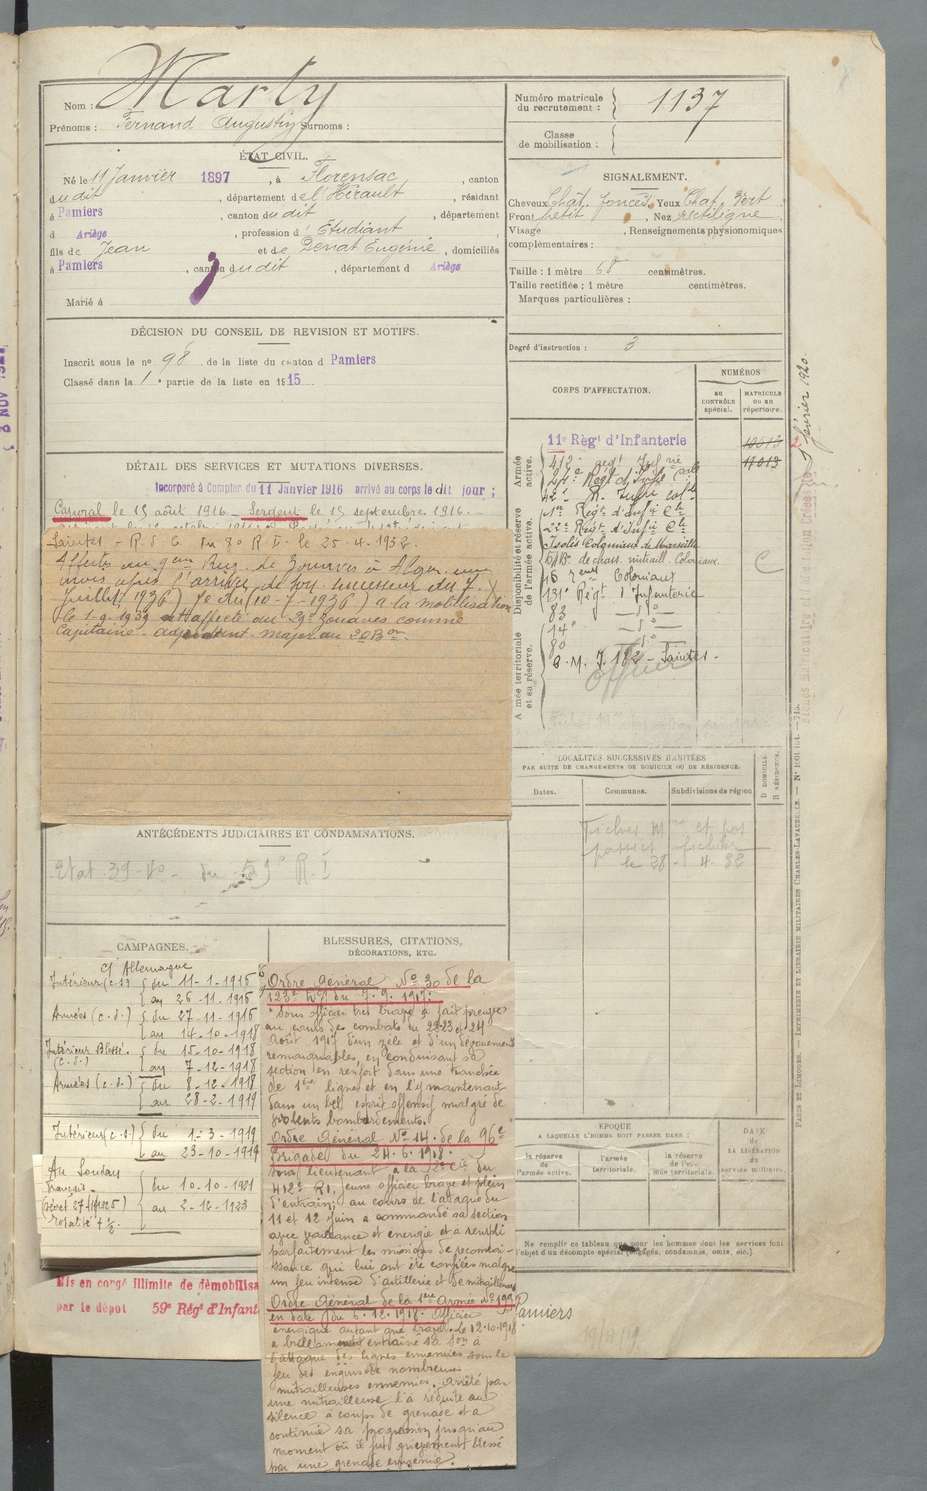 Nom : Marty
Prénoms : Fernand Augustin Surnoms :
Numéro matricule du recrutement : 1137
Classe de mobilisation :
ÉTAT CIVIL.
Né le 11 Janvier 1897, à Florensac, canton
dudit, département de l'Hérault, résidant
à Pamiers, canton dudit, département
d Ariège, profession d'Etudiant
fils de Jean et de Denat Eugénie, domiciliés
à Pamiers, canton dudit, département d Ariège
Marié à
SIGNALEMENT.
Cheveux Chât. foncés. Yeux Chat. Vert
Front petit, Nez rectiligne
Visage, Renseignements physionomiques
complémentaires :
Taille : 1 mètre 68 centimètres.
Taille rectifiée : 1 mètre centimètres.
Marques particulières :
Degré d'instruction : 3
DÉCISION DU CONSEIL DE REVISION ET MOTIFS.
Inscrit sous le n° 98 de la liste du canton d Pamiers
Classé dans la 1e partie de la liste en 1915
DÉTAIL DES SERVICES ET MUTATIONS DIVERSES.
Incorporé à Compter du 11 Janvier 1916 arrivé au corps le dit jour ;
Caporal le 15 août 1916 – Sergent le 15 septembre 1916.
Saintes – R. I. C. du 8e R. I. le 25.4.1932.
Affecté au 9eme Rég. de Zouaves à Alger un
mois après l'arrivée de
Juillet 1936) le du (10-7-1936) a la mobilisation
le 1-9-1939 affecté au 29e Zouaves comme
Capitaine – adjudant major au
CORPS D'AFFECTATION.
NUMÉROS
AU CONTRÔLE spécial.
MATRICULE OU AU répertoire.
Armée active.
Disponibilité et réserve de l'armée active.
Armée territoriale et sa réserve.
11e Régt d'Infanterie
10013
412e Régt Infrie
11013
24e Régt d'Infie Cale
42e R. Infie colle
1er Régt d'Infie Cle
22e Régt d'Infie Cle
Isolés Coloniaux de Marseille
Bon de chass. mitraill. Coloniaux.
Coloniaux
131e Régt d'Infanterie
83 – do –
14e – do –
80 – do –
Saintes
Officier
février 1920
LOCALITÉS SUCCESSIVES HABITÉES
PAR SUITE DE CHANGEMENTS DE DOMICILE OU DE RÉSIDENCE.
Dates.
Communes.
Subdivisions de région
D DOMICILE.
R RÉSIDENCE.
le 28-4-32
ANTÉCÉDENTS JUDICIAIRES ET CONDAMNATIONS.
Etat 39-40 – du 59e R. I
CAMPAGNES.
C/ Allemagne
Intérieur (c.s.) { du 11-1-1916
au 26-11-1916
Armées (c.d.) { du 27-11-1916
au 14-10-1918
Intérieur Blessé. { du 15-10-1918
(c.d.) au 7-12-1918
Armées (c.d.) { du 8-12-1918
au 28-2-1919
Intérieur (c.s.) { du 1-3-1919
au 23-10-1919
Au Soudan
français. { du 10-10-1921
au 2-12-1923
BLESSURES, CITATIONS,
DÉCORATIONS, ETC.
Ordre Général No 30 de la
123e du 7.9.1917:
"Sous officier très brave a fait preuve
au cours des combats du 22-23 et 24
Août 1917 d'un zèle et d'un dévouement
remarquables, en conduisant sa
section en renfort dans une tranchée
de 1ère ligne et en l'y maintenant
dans un bel esprit offensif malgré de
violents bombardements.
Ordre Général No 14. de la 96e
Brigade du 24.6.1918.
Sous lieutenant à la 2e Cie du
412e RI, jeune officier brave et plein
d'entrain; au cours de l'attaque du
11 et 12 Juin a commandé sa section
avec vaillance et énergie et a rempli
parfaitement les missions de reconnai-
ssance qui lui ont été confiées malgré
un feu intense d'artillerie et de mitrailleuses
Ordre Général de la 1ère Armée No 199
en date du 6.12.1918. Officier
énergique autant que brave. le 12.10.1918
a brillamment entraîné sa son à
l'attaque des lignes ennemies sous le
feu des engins de nombreuses
mitrailleuses ennemies. Arrêté par
une mitrailleuse l'a réduite au
silence à coups de grenade et a
continué sa progression jusqu'au
moment où il fut grièvement blessé
par une grenade ennemie.
ÉPOQUE
A LAQUELLE L'HOMME DOIT PASSER DANS :
la réserve de l'armée active.
l'armée territoriale.
la réserve de l'armée territoriale.
DATE de LA LIBÉRATION du service militaire.
Ne remplir ce tableau que pour les hommes dont les services font
l'objet d'un décompte spécial (engagés, condamnés, omis, etc.)
Mis en congé illimité de démobilisa
par le dépôt 59e Régt d'Infant
Pamiers
19/11/19
PARIS ET LIMOGES. — IMPRIMERIE ET LIBRAIRIE MILITAIRES CHARLES-LAVAUZELLE.